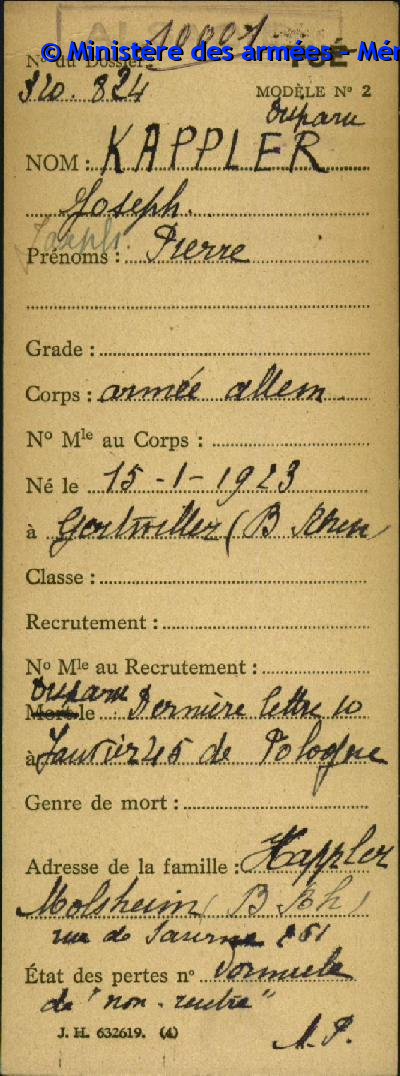 10001
© Ministère des armées - Mém
N° du Dossier :
320. 824
MODÈLE N° 2
Disparu
NOM : KAPPLER
Joseph
Joseph.
Prénoms : Pierre
Grade :
Corps : armée allem.
N° Mle au Corps :
Né le 15 - 1 - 1923
à Gertwiller (B Rhin)
Classe :
Recrutement :
N° Mle au Recrutement :
Disparu
Mort le Dernière lettre 10
à Janvier 45 de Pologne
Genre de mort :
Adresse de la famille : Kappler
Molsheim (B Rh)
rue de Saverne
État des pertes n° Formule
de "non-rentré"
J. H. 632619. (4)
A. P.